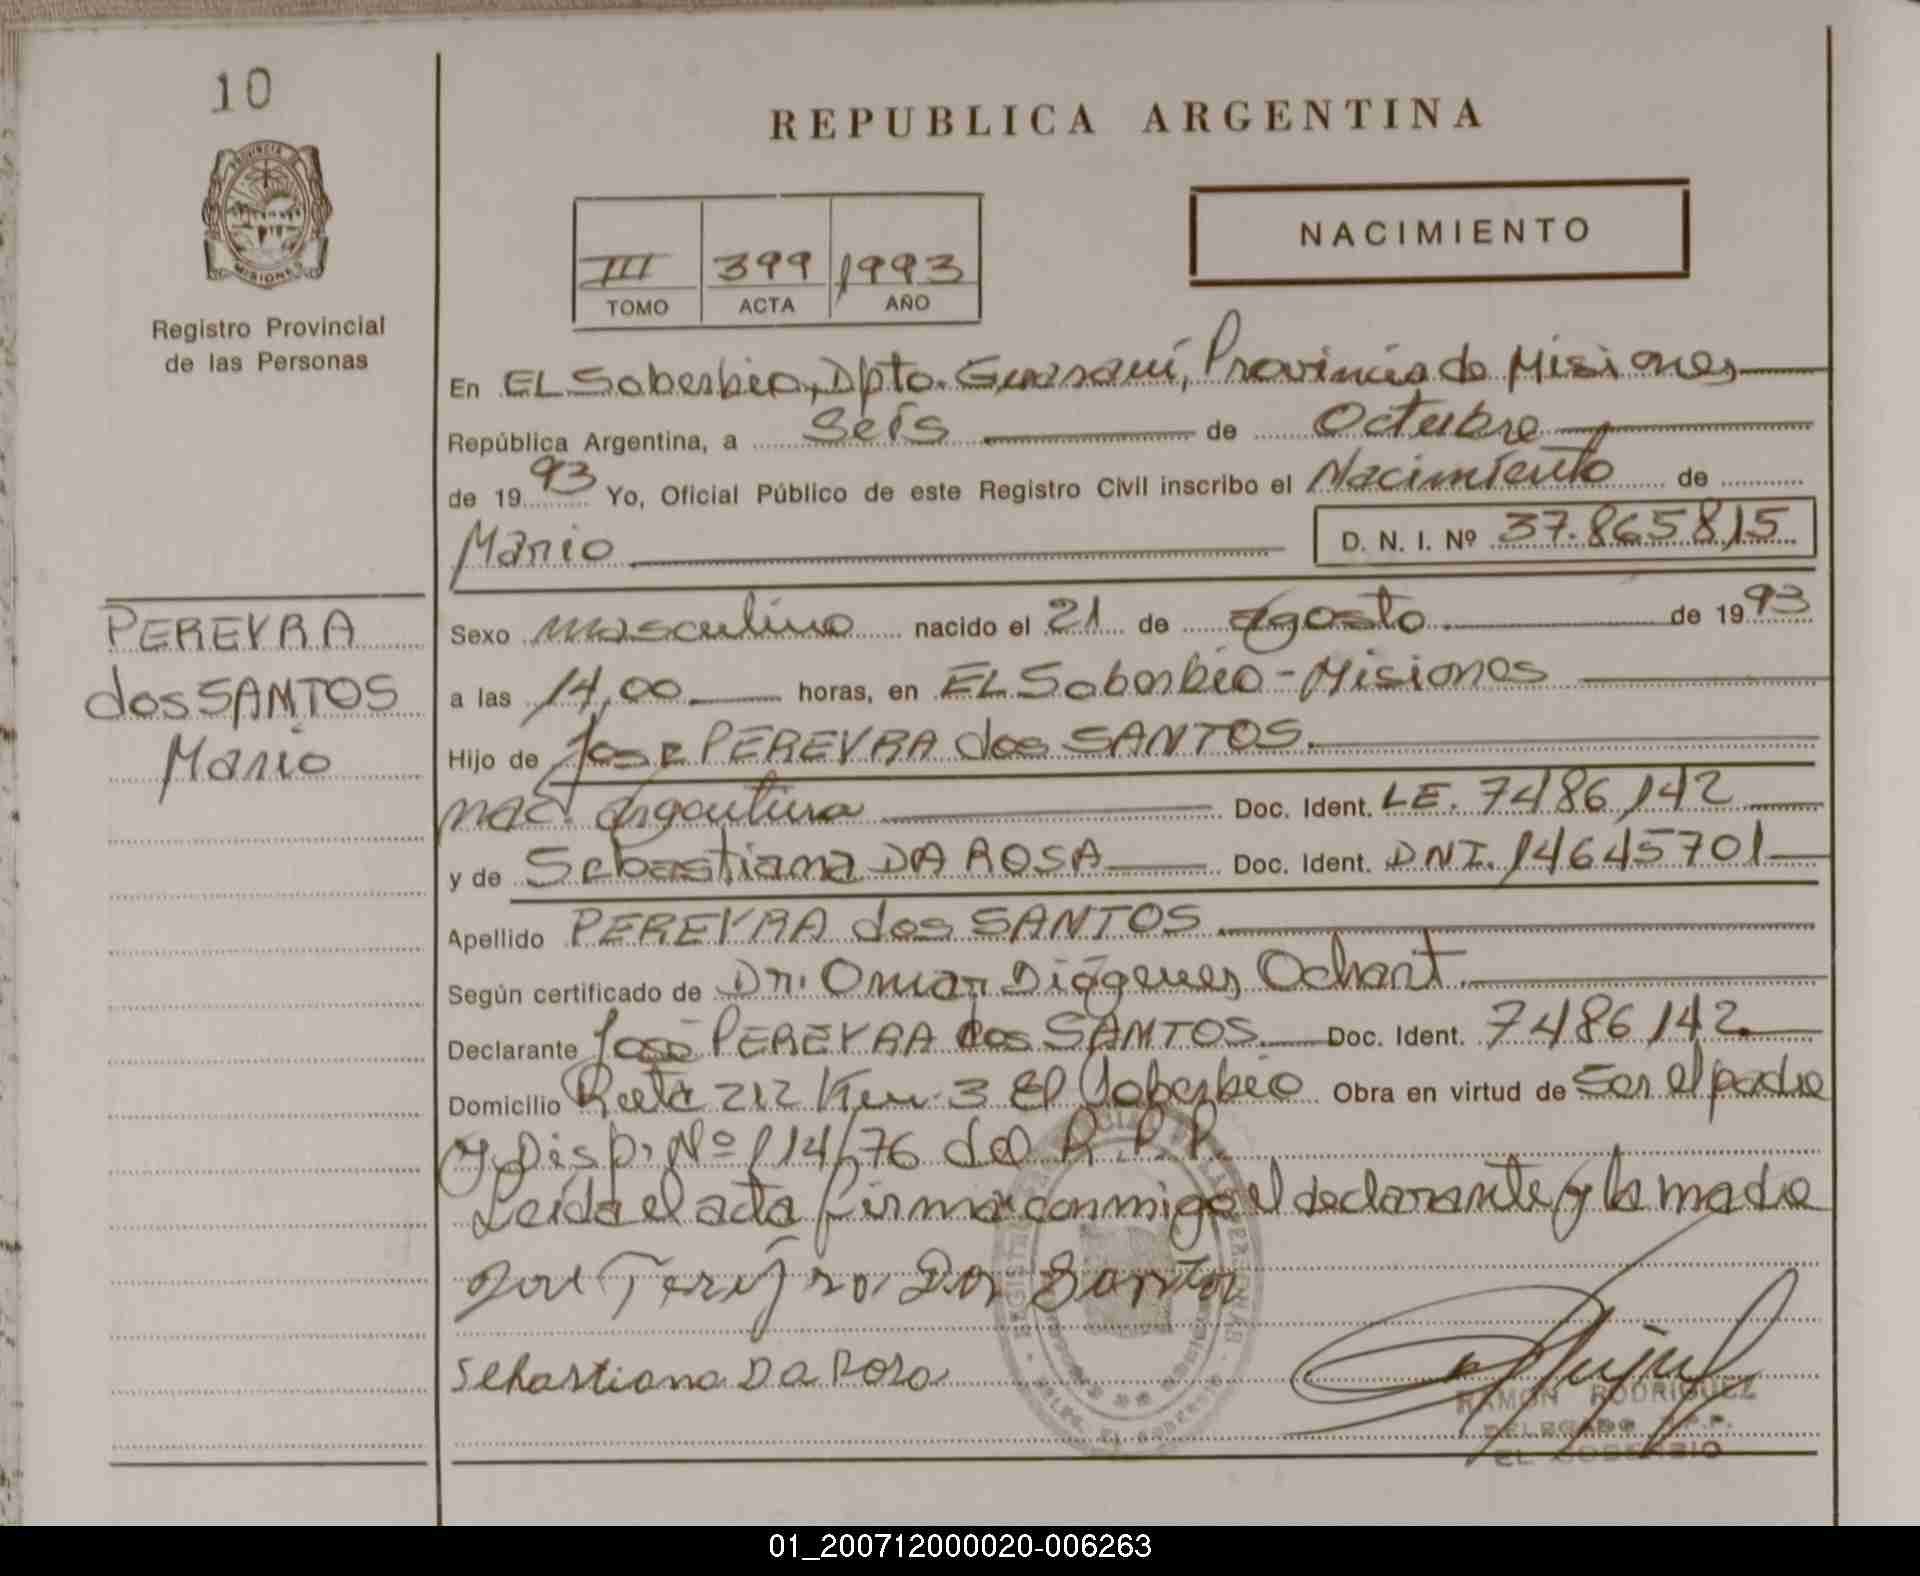 10
REPUBLICA ARGENTINA
PROVINCIA DE
MISIONES
NACIMIENTO
III 399 1993
TOMO ACTA AÑO
Registro Provincial
de las Personas
En EL Soberbio, Dpto. Guaraní, Provincia de Misiones
República Argentina, a Seis de Octubre
de 1993 Yo, Oficial Público de este Registro Civil inscribo el Nacimiento de
Mario D. N. I. Nº 37.865815
PEREYRA
dos SANTOS
Mario
Sexo masculino nacido el 21 de agosto de 1993
a las 14,00 horas, en EL Soberbio - Misiones
Hijo de Jose PEREYRA dos SANTOS.
nac. argentina Doc. Ident. LE. 7486142
y de Sebastiana DA ROSA Doc. Ident. DNI. 14645701
Apellido PEREYRA dos SANTOS
Según certificado de Dr. Omar Diógenes Ochart.
Declarante José PEREYRA dos SANTOS. Doc. Ident. 7486142
Domicilio Ruta 212 Km. 3 El Soberbio Obra en virtud de Ser el padre
y Disp. Nº 114/76 del R.P.P.
Leída el acta firma conmigo el declarante y la madre
José Dos Santos
Sebastiana DA Rosa
RAMON RODRIGUEZ
DELEGADO R.P.P.
EL SOBERBIO
01_200712000020-006263